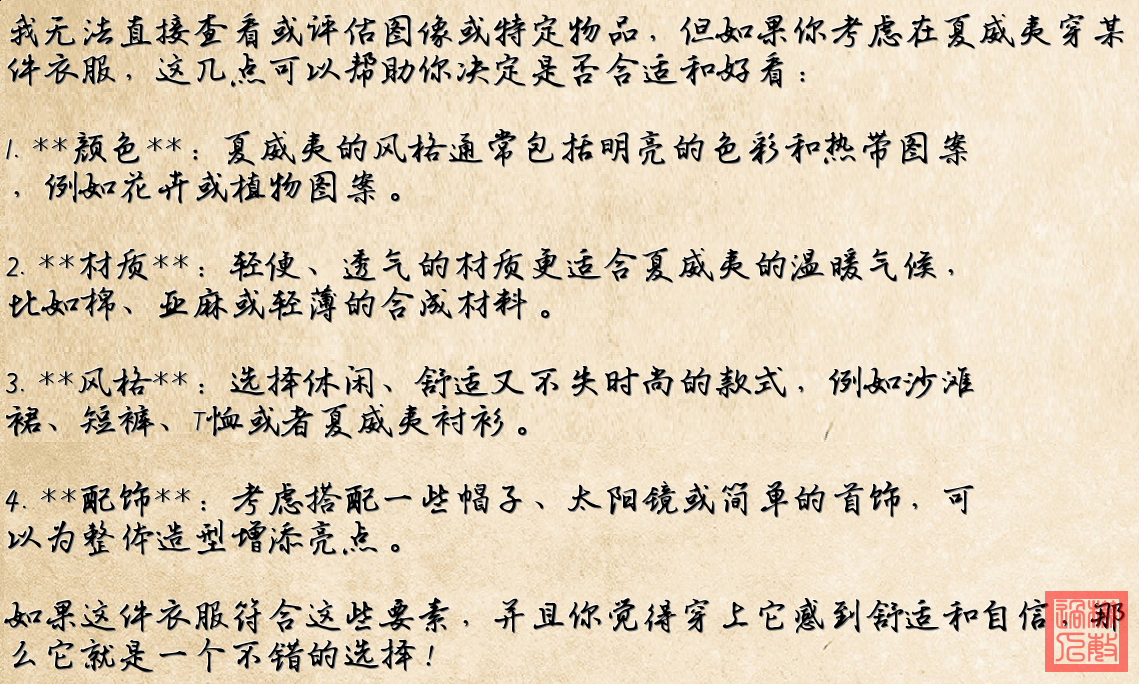 我无法直接查看或评估图像或特定物品，但如果你考虑在夏威夷穿某
件衣服，这几点可以帮助你决定是否合适和好看：
1. **颜色**：夏威夷的风格通常包括明亮的色彩和热带图案
，例如花卉或植物图案。
2. **材质**：轻便、透气的材质更适合夏威夷的温暖气候，
比如棉、亚麻或轻薄的合成材料。
3. **风格**：选择休闲、舒适又不失时尚的款式，例如沙滩
裙、短裤、T恤或者夏威夷衬衫。
4. **配饰**：考虑搭配一些帽子、太阳镜或简单的首饰，可
以为整体造型增添亮点。
如果这件衣服符合这些要素，并且你觉得穿上它感到舒适和自信，那
么它就是一个不错的选择！